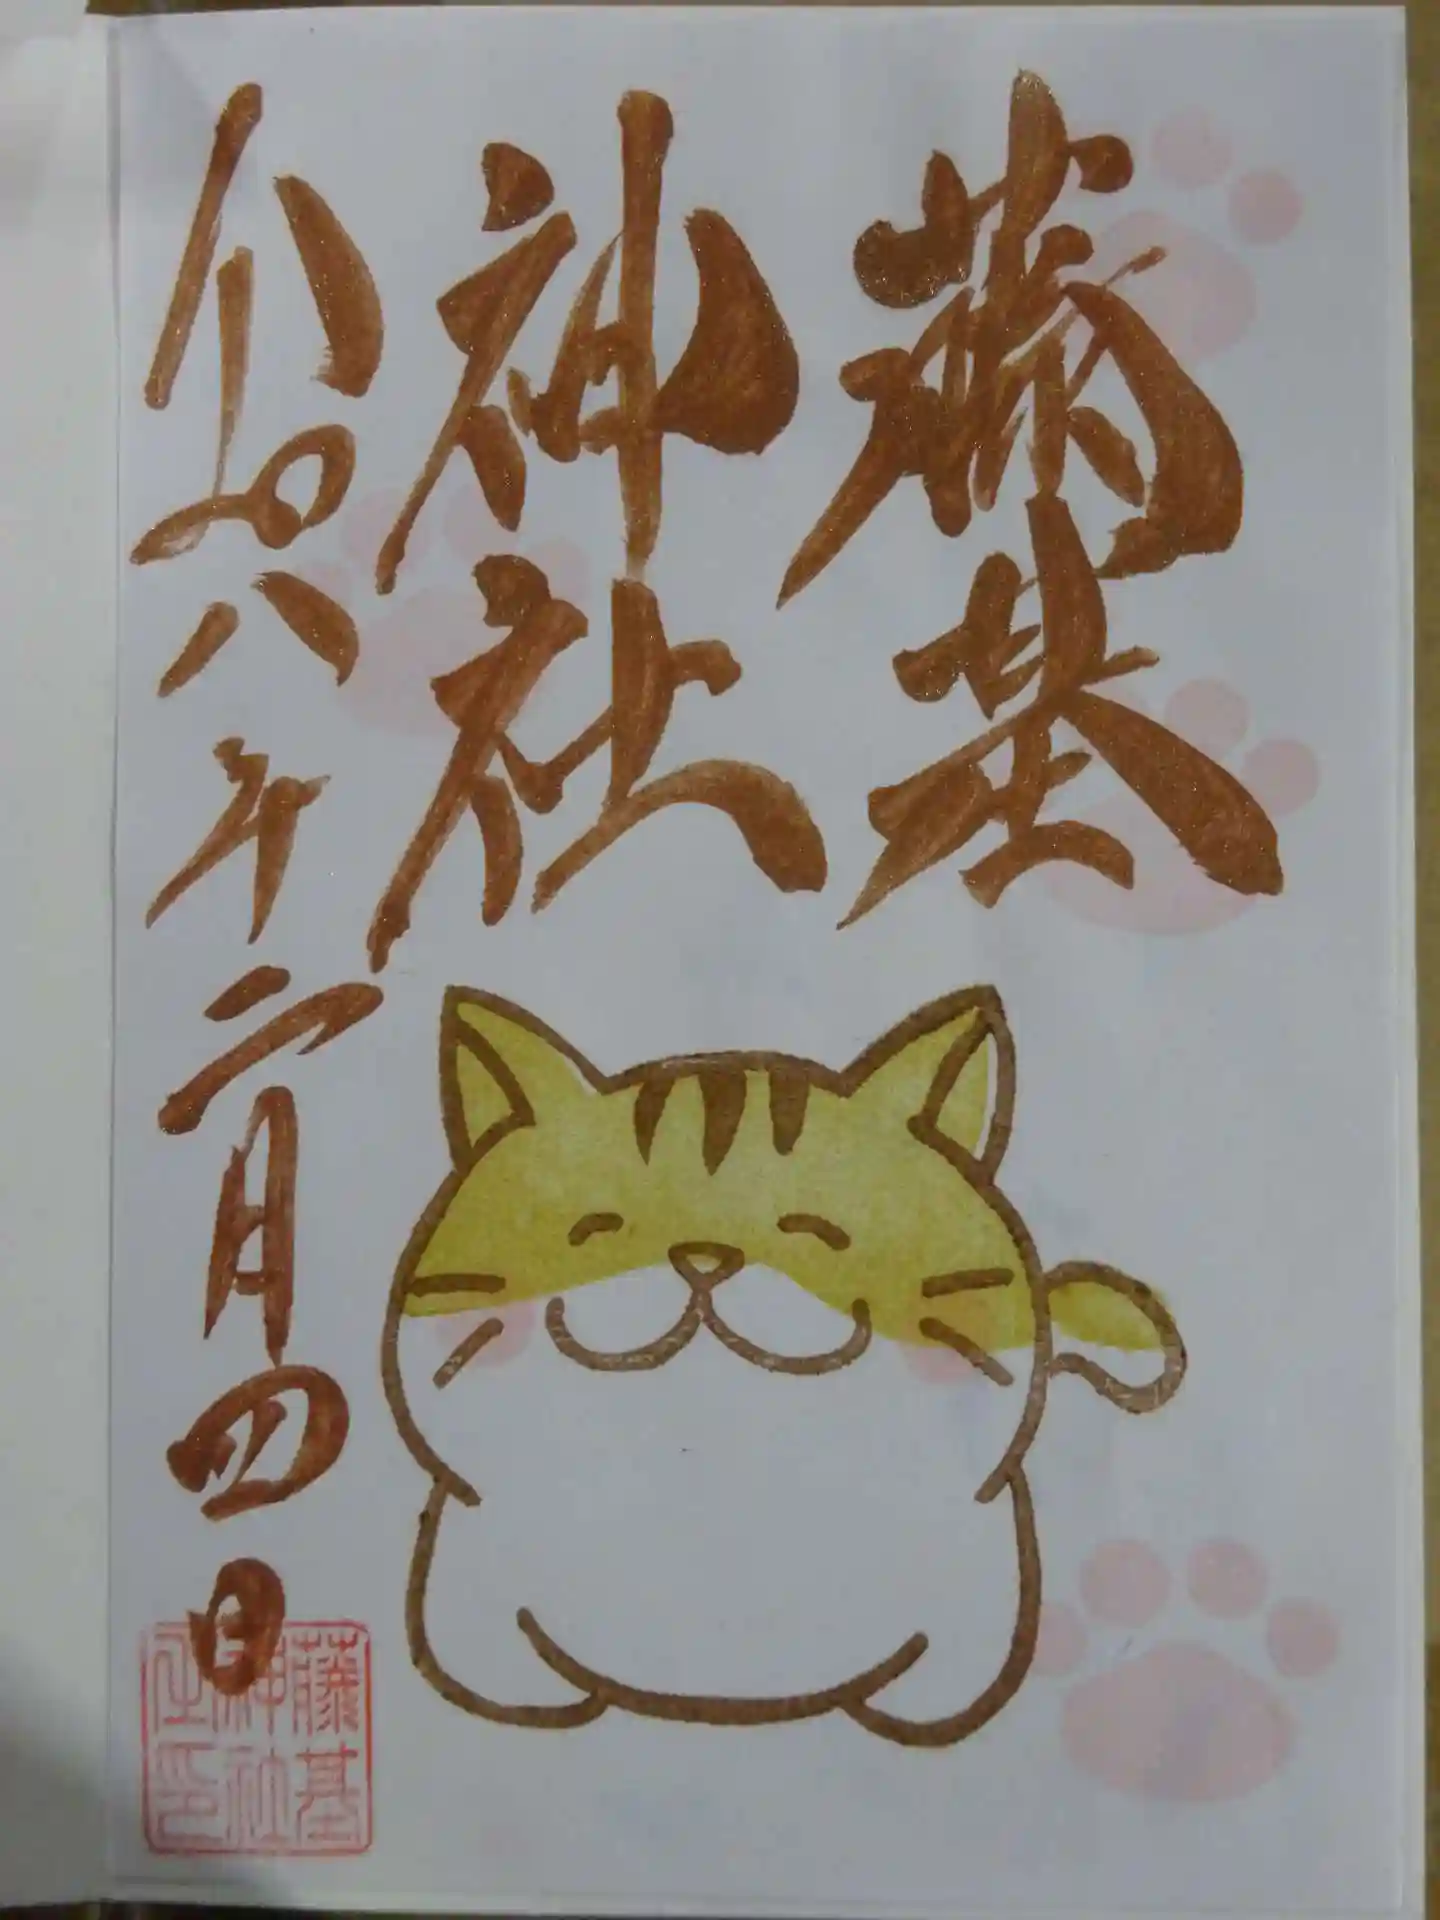 藤基
神社
令和八年二月四日
藤基
神社
之印